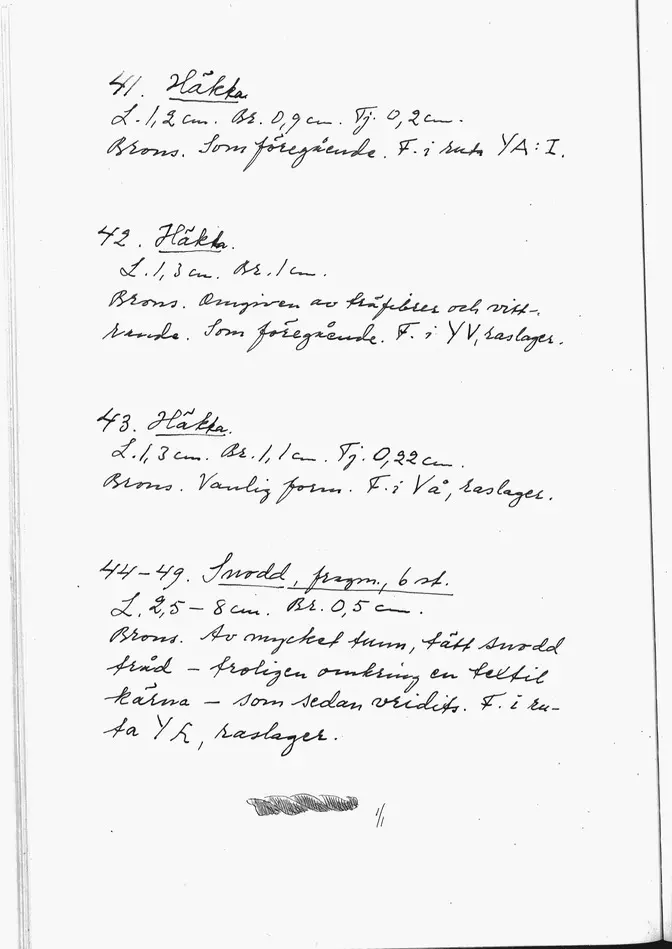 41. Häkta.
L. 1,2 cm. Br. 0,9 cm. Tj. 0,2 cm.
Brons. Som föregående. F. i ruta YA: I.
42. Häkta.
L. 1,3 cm. Br. 1 cm.
Brons. Omgiven av träfibrer och vitt-
rande. Som föregående. F. i YV, raslager.
43. Häkta.
L. 1,3 cm. Br. 1,1 cm. Tj. 0,22 cm.
Brons. Vanlig form. F. i Vå, raslager.
44-49. Snodd, fragm., 6 st.
L. 2,5 – 8 cm. Br. 0,5 cm.
Brons. Av mycket tunn, tätt snodd
tråd – troligen omkring en textil
kärna – som sedan vridits. F. i ru-
ta Y, raslager.
1/1